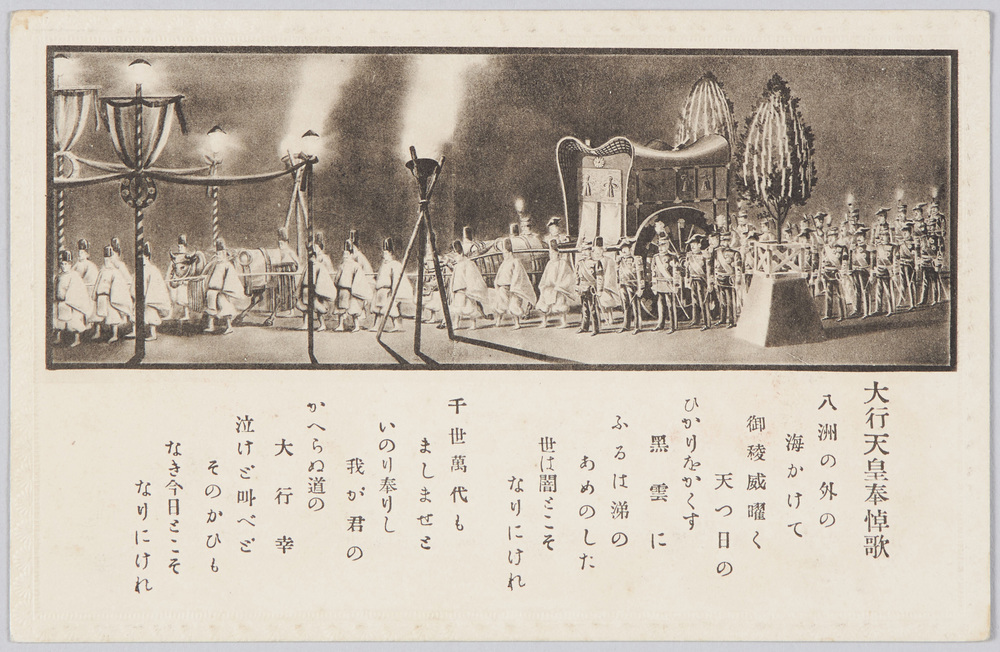 大行天皇奉悼歌
八洲の外の
海かけて
御稜威曜く
天つ日の
ひかりをかくす
黑雲に
ふるは涕の
あめのした
世は闇とこそ
なりにけれ
千世萬代も
ましませと
いのり奉りし
我が君の
かへらぬ道の
大行幸
泣けど叫べど
そのかひも
なき今日とこそ
なりにけれ